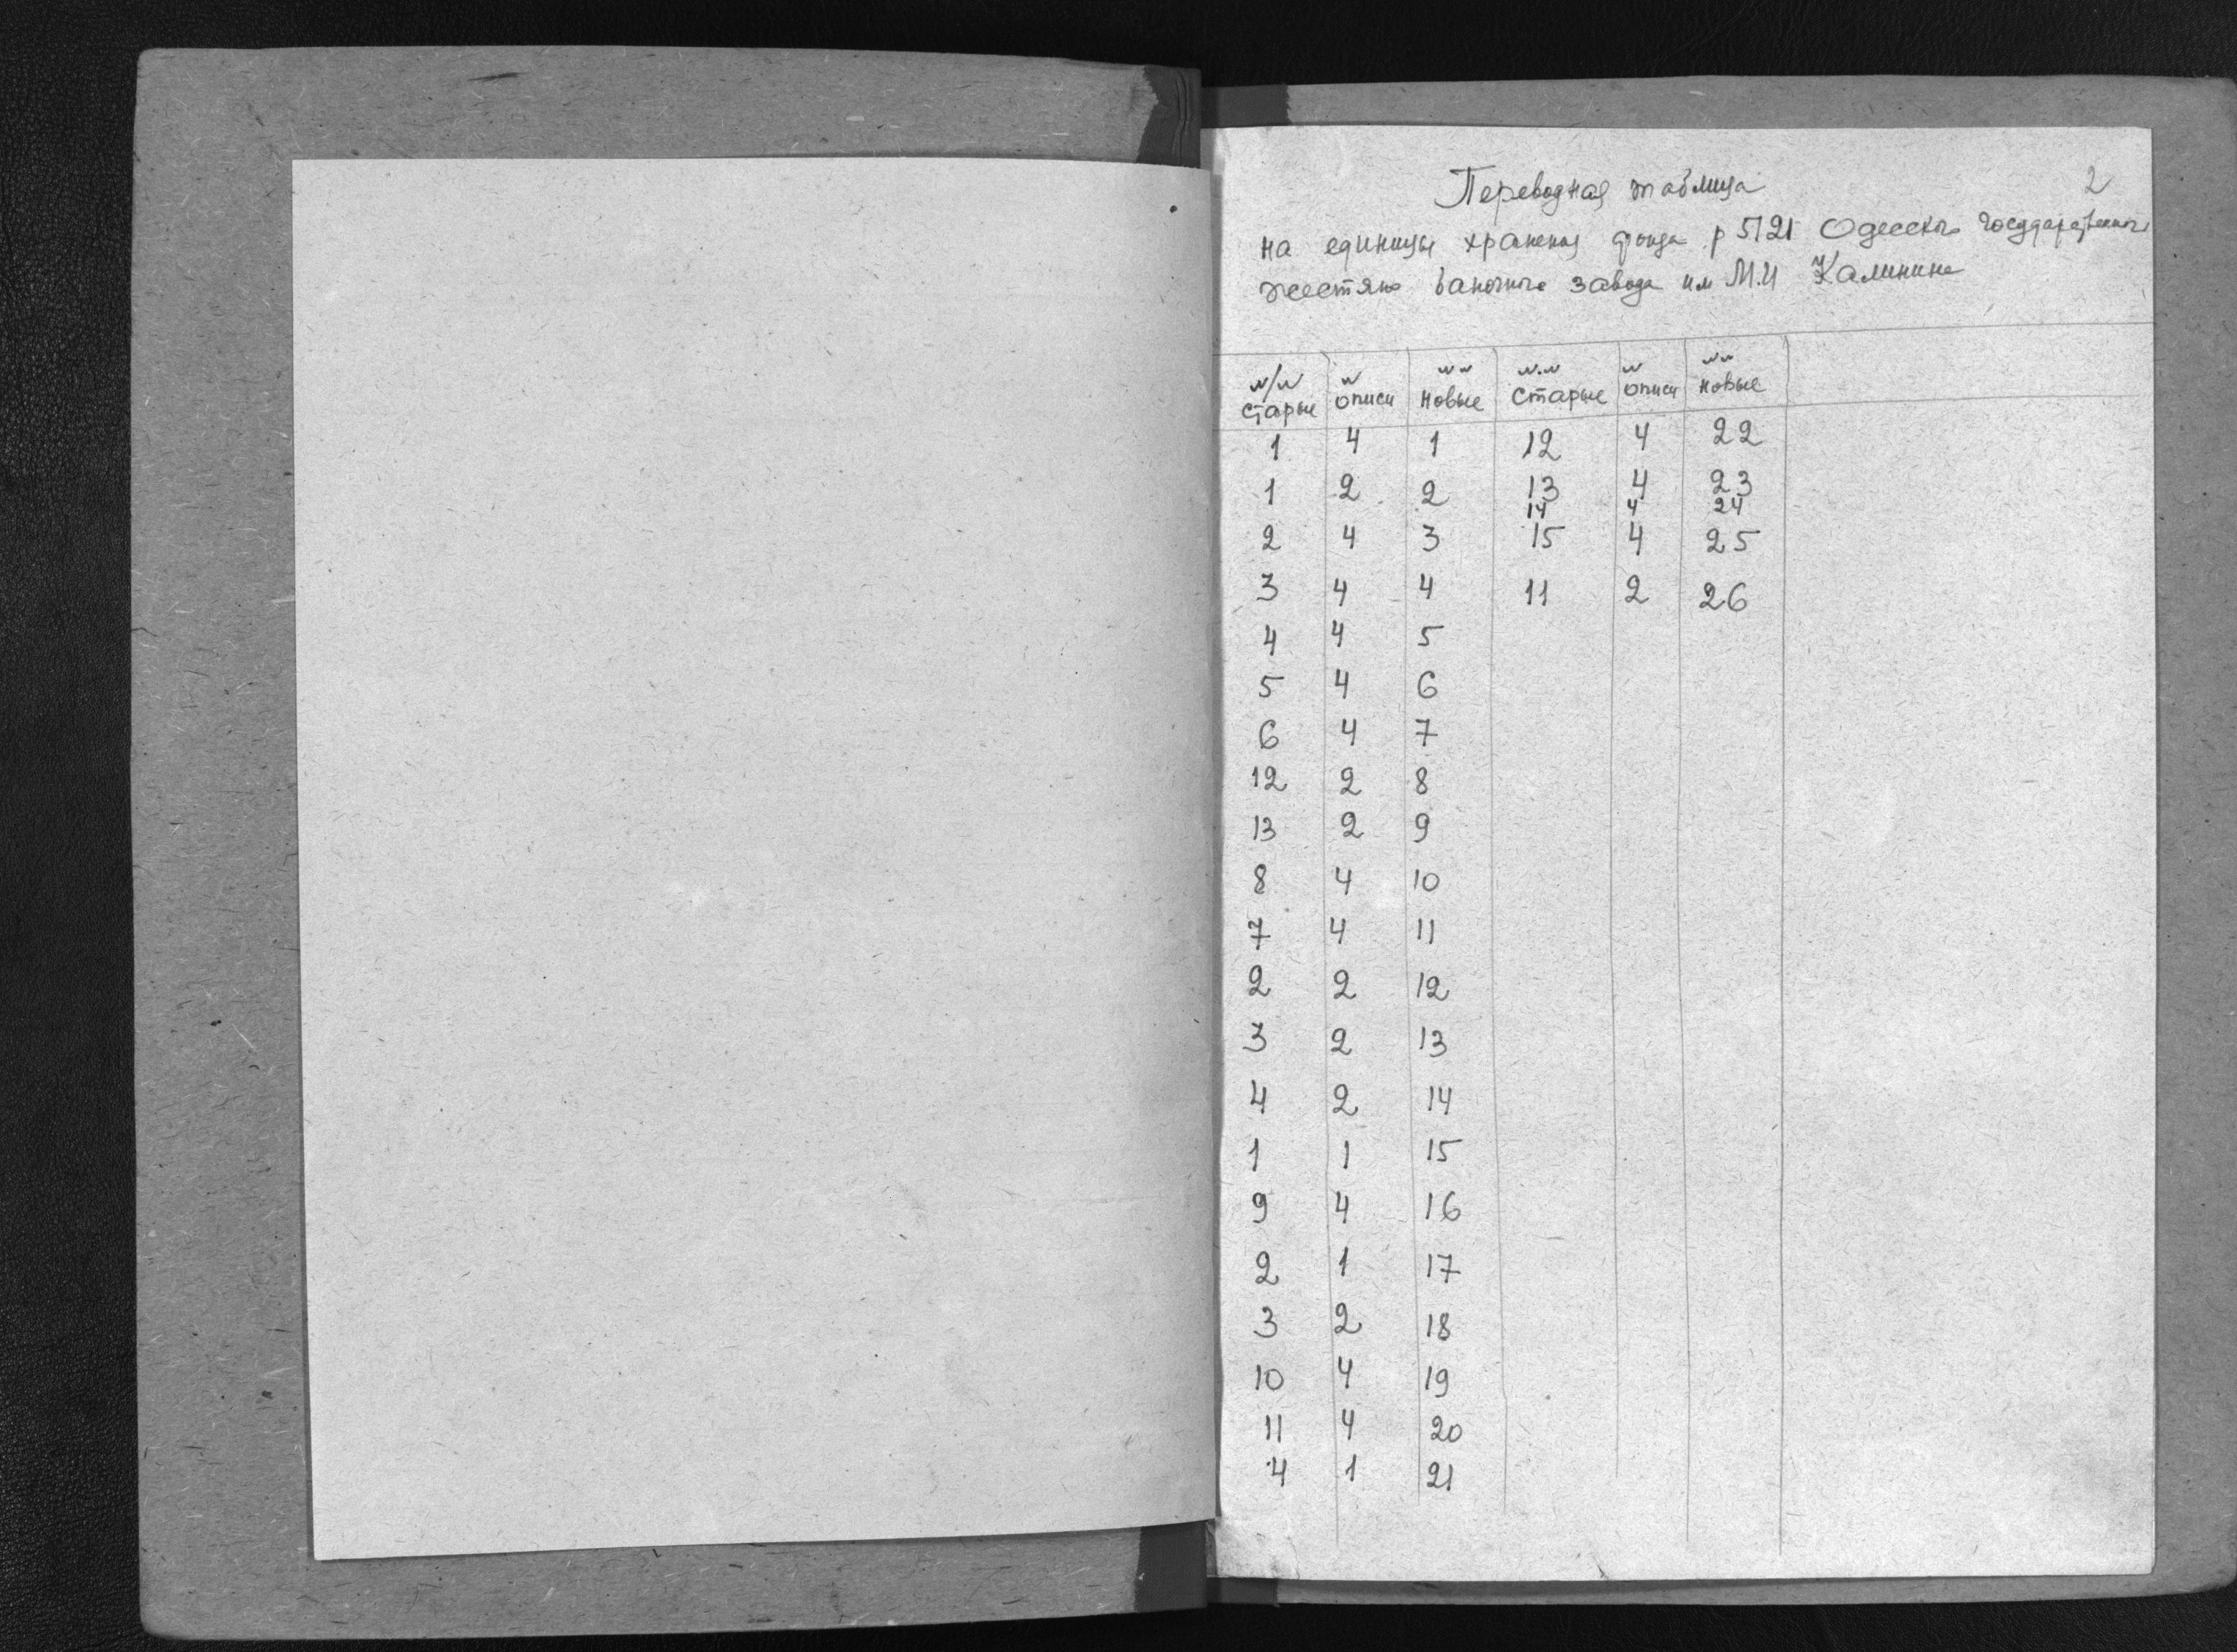 2
Переводная таблица
на единицы хранения фонда р 5121 Одесского Государственного
жестяно баночного завода им М.И Калинина
№/№ старые № описи №№ новые №.№ старые № описи №№ новые
1 4 1 12 4 22
1 2 2 13 4 23
14 4 24
2 4 3 15 4 25
3 4 4 11 2 26
4 4 5
5 4 6
6 4 7
12 2 8
13 2 9
8 4 10
7 4 11
2 2 12
3 2 13
4 2 14
1 1 15
9 4 16
2 1 17
3 2 18
10 4 19
11 4 20
4 1 21